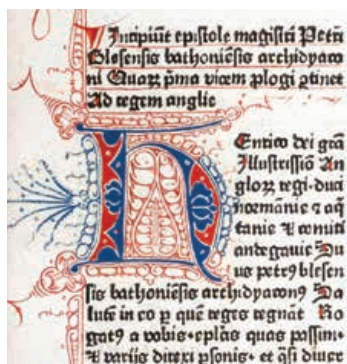 Incipiūt epistole magistri Petri
Blesensis bathoniēsis archidyaco
ni Quaꝝ p̄ma vicem ꝓlogi ꝑtinet
Ad regem anglie
H
Enrico dei grā
Illustrissiō An
gloꝝ regi·duci
normānie ⁊ aq̄
tanie ⁊ comiti
andegauie Su
us petrꝯ blesen
sis bathoniēsis archidyaconꝯ Sa
lutē in eo ꝑ quē reges regnāt Ro
gatꝯ a vobis·eplās quas passim·
⁊ varijs direxi ꝑsonis· et q̄si diuer